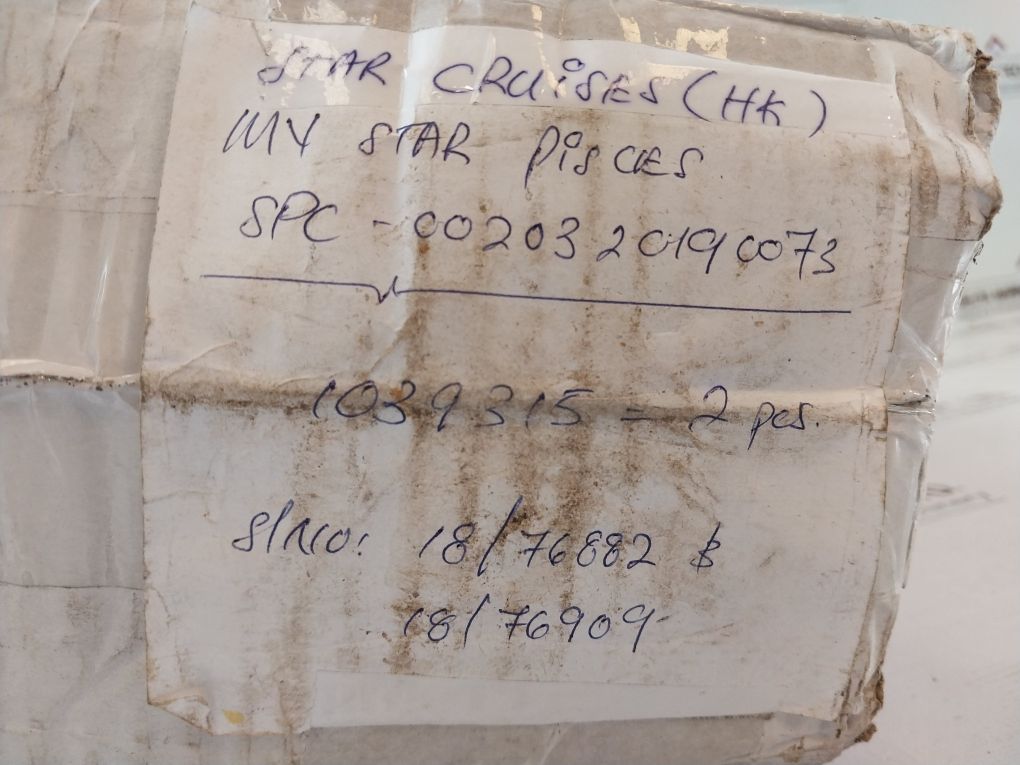 STAR CRUISES (HK)
MV STAR PISCES
SPC - 00203 20190073
1039315 = 2 pcs.
S/NO: 18/76882 &
18/76909